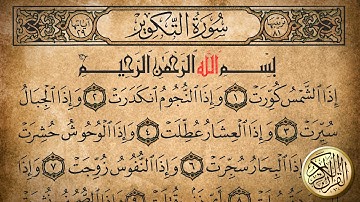 سُورَةُ التَّكْوِيرِ
بِسْمِ اللَّهِ الرَّحْمَٰنِ الرَّحِيمِ
إِذَا الشَّمْسُ كُوِّرَتْ ١ وَإِذَا النُّجُومُ انكَدَرَتْ ٢ وَإِذَا الْجِبَالُ
سُيِّرَتْ ٣ وَإِذَا الْعِشَارُ عُطِّلَتْ ٤ وَإِذَا الْوُحُوشُ حُشِرَتْ
٥ وَإِذَا الْبِحَارُ سُجِّرَتْ ٦ وَإِذَا النُّفُوسُ زُوِّجَتْ ٧ وَإِذَا
قُتِلَتْ ٩ وَإِذَا الصُّحُفُ نُشِرَتْ